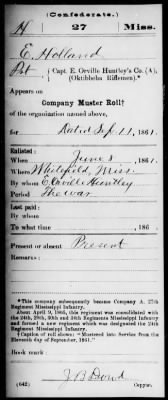 (Confederate.)
H 27 Miss.
E. Holland
Pvt { Capt. E. Orville Huntley's Co. (A),
(Oktibbeha Riflemen).*
Appears on
Company Muster Roll†
of the organization named above,
for Dated Sep. 11, 1861.
Enlisted:
When June 8, 1861.
Where Whitefield, Miss.
By whom E. Orville Huntley
Period The war
Last paid:
By whom
To what time , 186 .
Present or absent Present
Remarks:
*This company subsequently became Company A, 27th
Regiment Mississippi Infantry.
About April 9, 1865, this regiment was consolidated with
the 24th, 29th, 30th and 34th Regiments Mississippi Infantry
and formed a new regiment which was designated the 24th
Regiment Mississippi Infantry.
†Caption of roll shows "Mustered into service from the
Eleventh day of September, 1861."
Book mark:
(642) Copyist.